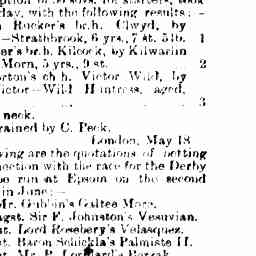 with the following results: -
Rocker's br.h. Clwyd, by
-Strathbrook, 6 yrs., 7 st. 5lb. 1
er's br.h. Kilcock, by Kilwarlin
Morn, 5 yrs., 9 st. 2
orton's ch h. Victor Wild, by
Victor-Wild Huntress, aged,
... 3
neck.
rained by C. Peck.
London, May 18
wing are the quotations of betting
nection with the race for the Derby
be run at Epsom on the second
in June:-
Mr. Gubbin's Galtee More.
agst. Sir F. Johnston's Vesuvian.
st. Lord Rosebery's Velasquez.
st. Baron Schickla's Palmiste II.
st. Mr. P. Lorillard's Berzak.